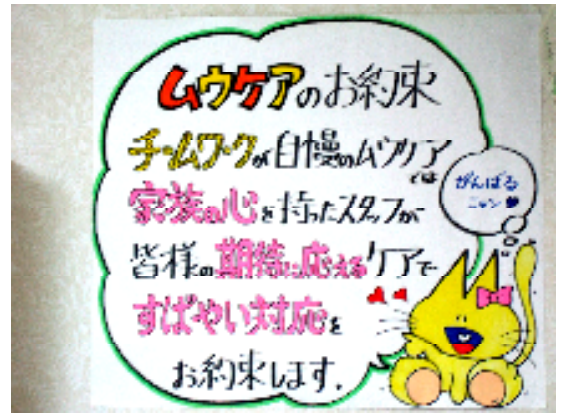 ムウケアのお約束
チームワークが自慢のムウケア
では
家族の心を持ったスタッフが
皆様の期待に応えるケアで
すばやい対応を
お約束します.
がんばる
ニャン♥